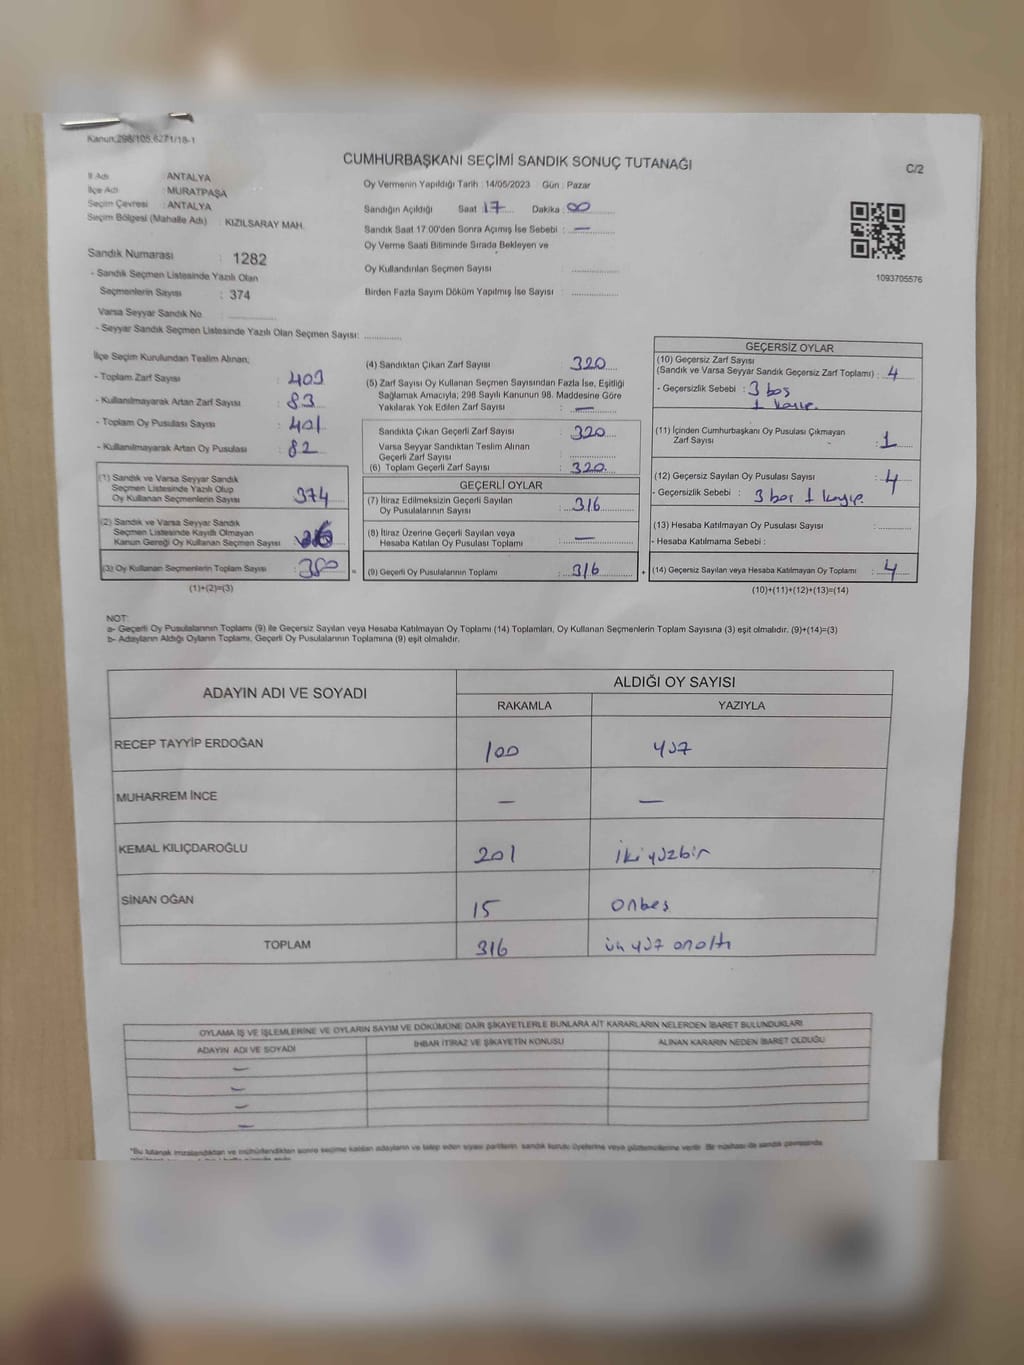 Kanun:298/105,6271/18-1
CUMHURBAŞKANI SEÇİMİ SANDIK SONUÇ TUTANAĞI
C/2
İl Adı : ANTALYA
İlçe Adı : MURATPAŞA
Seçim Çevresi : ANTALYA
Seçim Bölgesi (Mahalle Adı) : KIZILSARAY MAH.
Sandık Numarası : 1282
- Sandık Seçmen Listesinde Yazılı Olan
Seçmenlerin Sayısı : 374
Varsa Seyyar Sandık No
- Seyyar Sandık Seçmen Listesinde Yazılı Olan Seçmen Sayısı:
Oy Vermenin Yapıldığı Tarih : 14/05/2023 Gün : Pazar
Sandığın Açıldığı Saat 17 Dakika : 00
Sandık Saat 17:00'den Sonra Açımış İse Sebebi : —
Oy Verme Saati Bitiminde Sırada Bekleyen ve
Oy Kullandırılan Seçmen Sayısı
Birden Fazla Sayım Döküm Yapılmış İse Sayısı
1093705576
İlçe Seçim Kurulundan Teslim Alınan;
- Toplam Zarf Sayısı : 403
- Kullanılmayarak Artan Zarf Sayısı : 83
- Toplam Oy Pusulası Sayısı : 401
- Kullanılmayarak Artan Oy Pusulası : 82
(1) Sandık ve Varsa Seyyar Sandık
Seçmen Listesinde Yazılı Olup
Oy Kullanan Seçmenlerin Sayısı 374
(2) Sandık ve Varsa Seyyar Sandık
Seçmen Listesinde Kayıtlı Olmayan
Kanun Gereği Oy Kullanan Seçmen Sayısı
(3) Oy Kullanan Seçmenlerin Toplam Sayısı : 380
(1)+(2)=(3)
(4) Sandıktan Çıkan Zarf Sayısı : 320
(5) Zarf Sayısı Oy Kullanan Seçmen Sayısından Fazla İse, Eşitliği
Sağlamak Amacıyla; 298 Sayılı Kanunun 98. Maddesine Göre
Yakılarak Yok Edilen Zarf Sayısı : —
Sandıkta Çıkan Geçerli Zarf Sayısı : 320
Varsa Seyyar Sandıktan Teslim Alınan
Geçerli Zarf Sayısı
(6) Toplam Geçerli Zarf Sayısı : 320
GEÇERLİ OYLAR
(7) İtiraz Edilmeksizin Geçerli Sayılan
Oy Pusulalarının Sayısı : 316
(8) İtiraz Üzerine Geçerli Sayılan veya
Hesaba Katılan Oy Pusulası Toplamı : —
(9) Geçerli Oy Pusulalarının Toplamı : 316
GEÇERSİZ OYLAR
(10) Geçersiz Zarf Sayısı
(Sandık ve Varsa Seyyar Sandık Geçersiz Zarf Toplamı) : 4
- Geçersizlik Sebebi : 3 boş
1 kayıp.
(11) İçinden Cumhurbaşkanı Oy Pusulası Çıkmayan
Zarf Sayısı : 1
(12) Geçersiz Sayılan Oy Pusulası Sayısı : 4
- Geçersizlik Sebebi : 3 boş 1 kayıp.
(13) Hesaba Katılmayan Oy Pusulası Sayısı :
- Hesaba Katılmama Sebebi :
(14) Geçersiz Sayılan veya Hesaba Katılmayan Oy Toplamı : 4
(10)+(11)+(12)+(13)=(14)
NOT:
a- Geçerli Oy Pusulalarının Toplamı (9) ile Geçersiz Sayılan veya Hesaba Katılmayan Oy Toplamı (14) Toplamları, Oy Kullanan Seçmenlerin Toplam Sayısına (3) eşit olmalıdır. (9)+(14)=(3)
b- Adayların Aldığı Oyların Toplamı, Geçerli Oy Pusulalarının Toplamına (9) eşit olmalıdır.
ADAYIN ADI VE SOYADI ALDIĞI OY SAYISI
RAKAMLA YAZIYLA
RECEP TAYYİP ERDOĞAN 100 yüz
MUHARREM İNCE — —
KEMAL KILIÇDAROĞLU 201 ikiyüzbir
SİNAN OĞAN 15 onbeş
TOPLAM 316 üç yüz onaltı
OYLAMA İŞ VE İŞLEMLERİNE VE OYLARIN SAYIM VE DÖKÜMÜNE DAİR ŞİKAYETLERLE BUNLARA AİT KARARLARIN NELERDEN İBARET BULUNDUKLARI
ADAYIN ADI VE SOYADI İHBAR İTİRAZ VE ŞİKAYETİN KONUSU ALINAN KARARIN NEDEN İBARET OLDUĞU
—
—
—
—
*Bu tutanak imzalandıktan ve mühürlendikten sonra seçime katılan adayların ve talep eden siyasi partilerin, sandık kurulu üyelerine veya gözlemcilerine verilir. Bir nüshası de sandık çevresinde